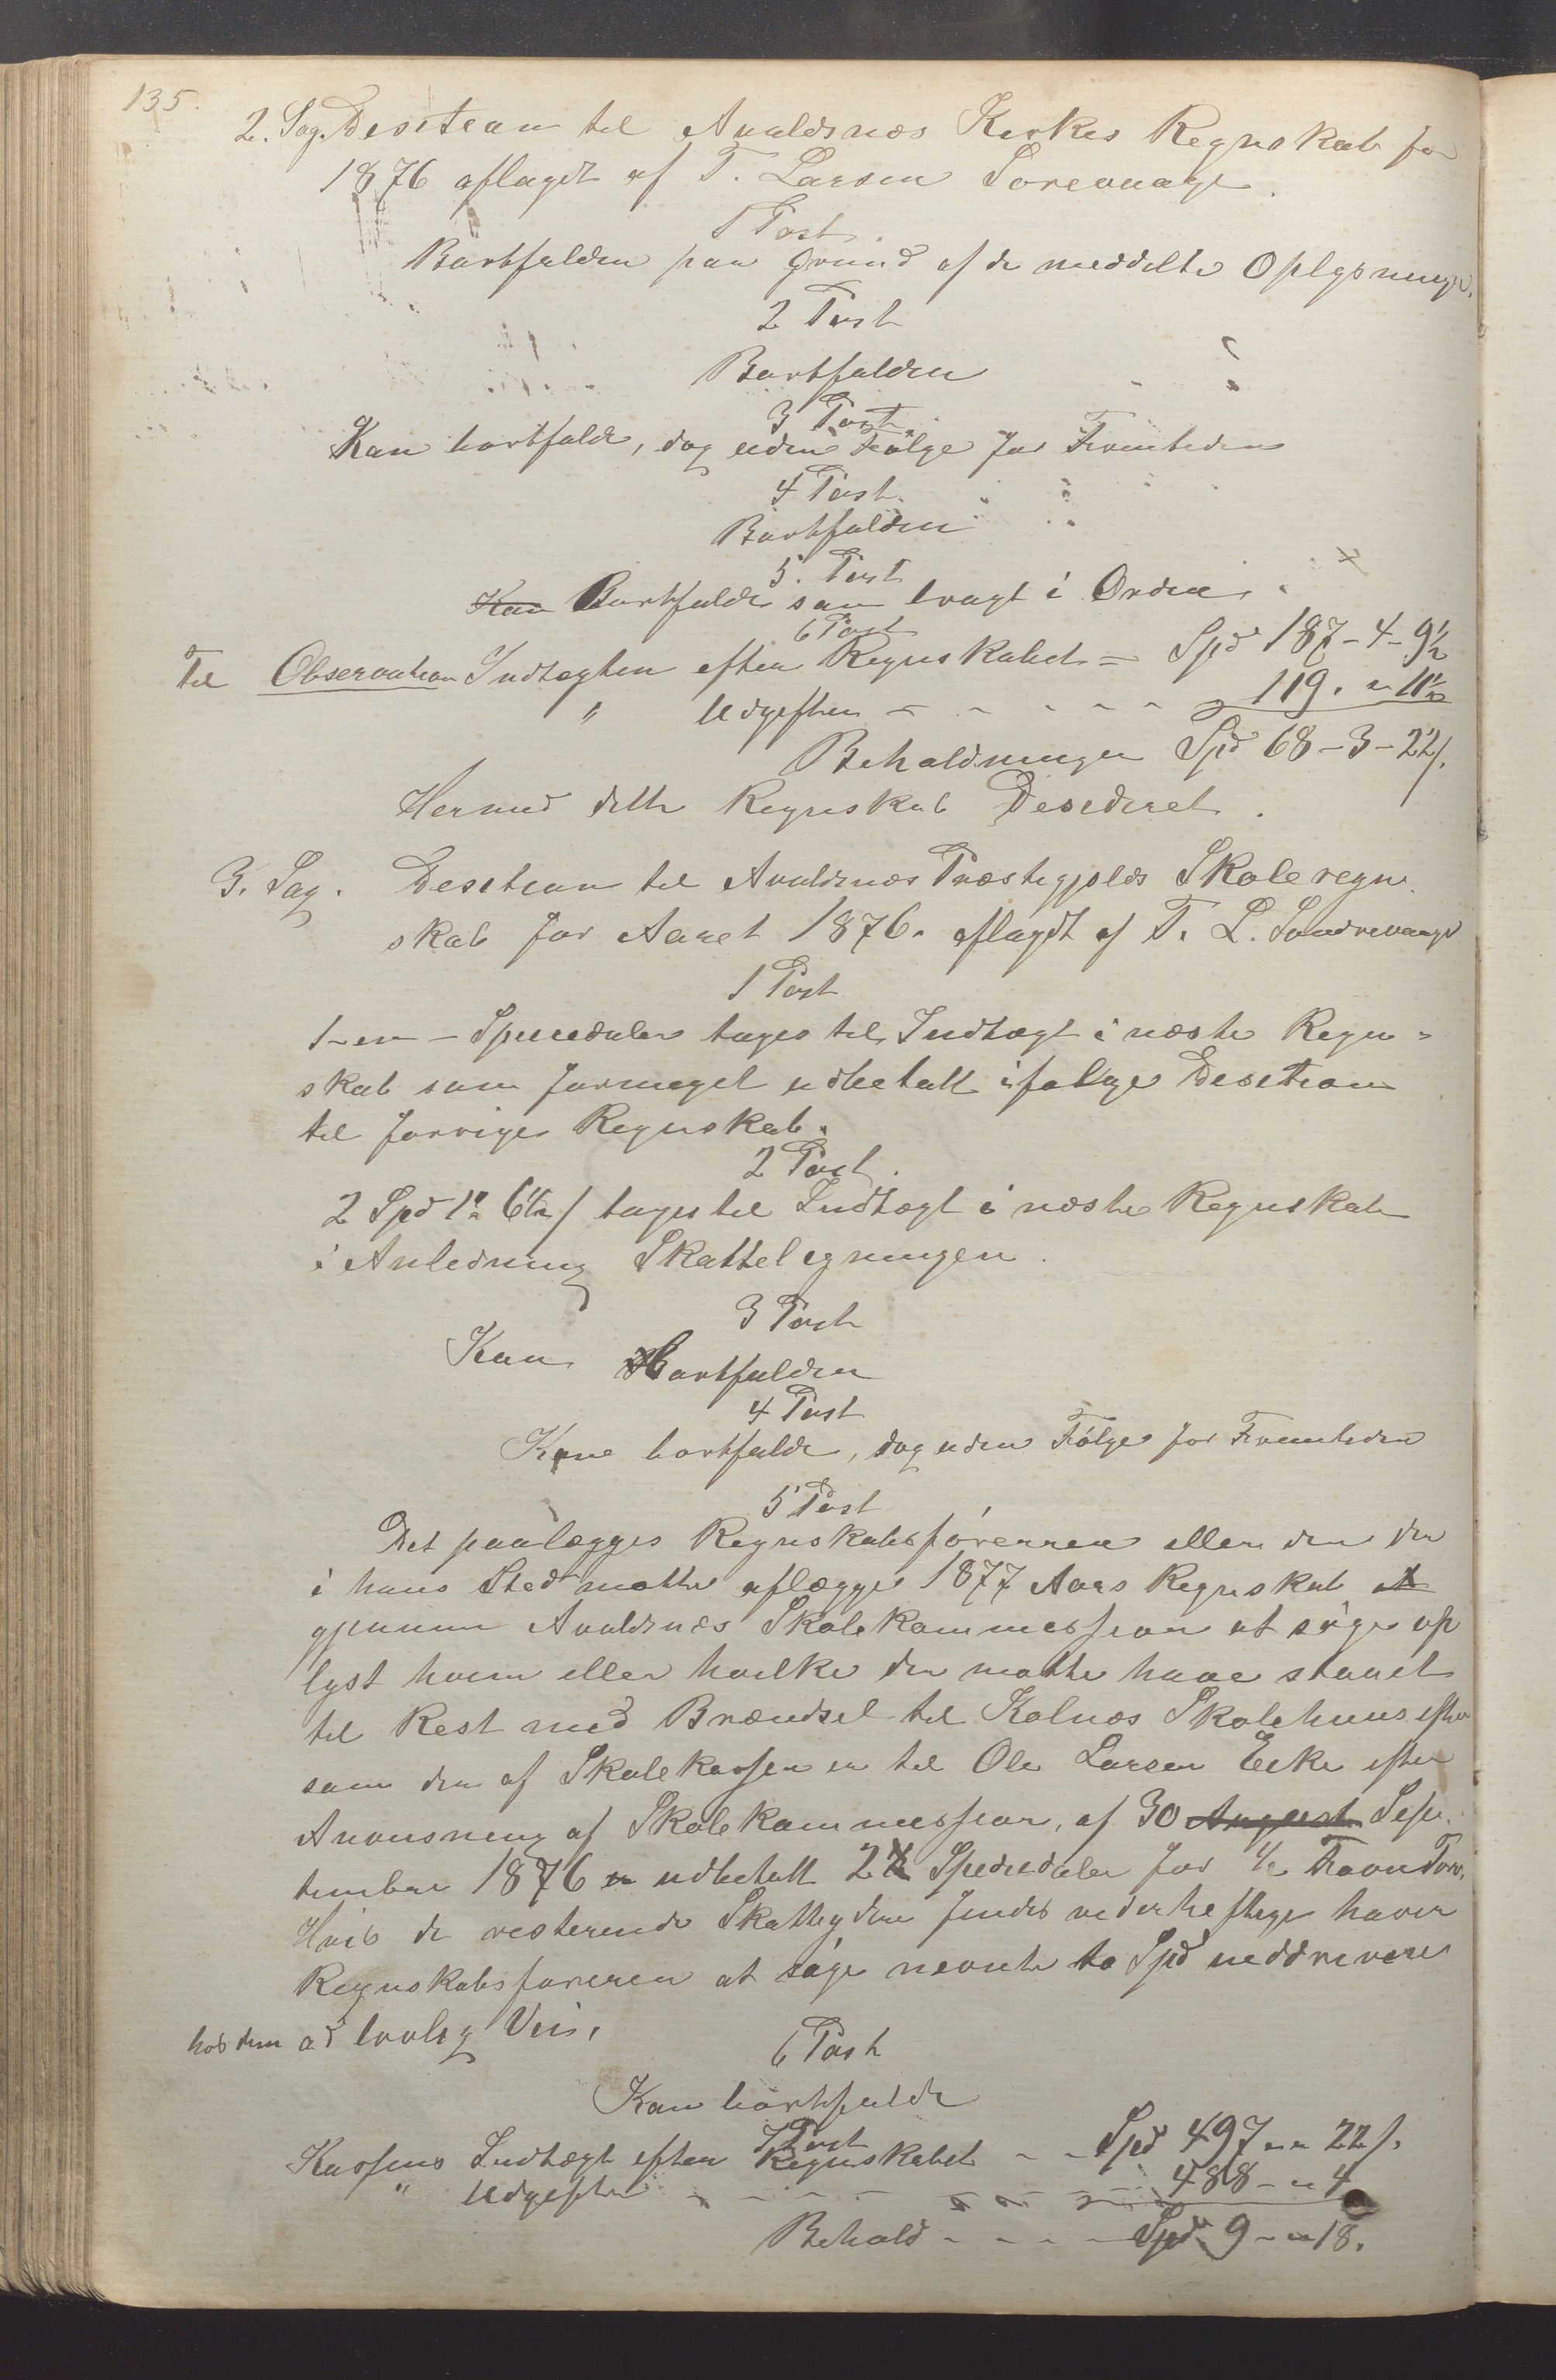 135.
2. Sag. Desition til Avaldsnæs Kirkes Regnskab for
1876 aflagdt af T. Larsen
1 Post.
Bortfalder paa Grund af de meddelte Oplysninger.
2 Post
Bortfalder
3 Post.
Kan bortfalde, dog uden Følge for Fremtiden
4 Post.
Bortfalder
5. Post
Kan Bortfalde som bragt i Orden.
6 Post
Til Observation Indtægten efter Regnskabet = Spd 187-4-9½
" Udgiften - - - - - 119. " 11½
Beholdningen Spd 68-3-22/.
Hermed dette Regnskab Desideret.
3. Sag. Desition til Avaldsnæs Præstegjelds Skoleregn-
skab for Aaret 1876. aflagdt af T. L. Sundrevaage
1 Post
1-en-Speciedaler tages til Indtægt i næste Regn-
skab som formeget udbetalt ifølge Desition
til forrige Regnskab.
2 Post.
2 Spd 1" 6½ / tages til Indtægt i næste Regnskab
i Anledning Skattelegningen.
3 Post
Kan Bortfalder
4 Post
Kan bortfalde, dog uden Følge for Fremtiden
5 Post
Det paalægges Regnskabsføreren eller den der
i hans Sted maatte aflægge 1877 Aars Regnskab at
gjennem Avaldsnæs Skolekommission at søge op
lyst hvem eller hvilke der maatte have staaet
til Rest med Brændsel til Kolnæs Skolehuus efter
som der af Skolekassen er til Ole Larsen Eike efter
Anvisning af Skolekommission, af 30 August Sep-
tember 1876 er udbetalt 2 Speciedaler for ½ Favn Torv.
Hvis de resterende Skatteydere findes vederheftige haver
Regnskabsføreren at søge nevnte to Spd inddrevere
hos dem ad lovlig Veis,
6 Post
Kan bortfalde
7 Post
Kassens Indtægt efter Regnskabet - - Spd 497 " " 22/.
" Udgifter - - - - - - - 488 - " 4
Behold - - - - Spd. 9 - " 18.